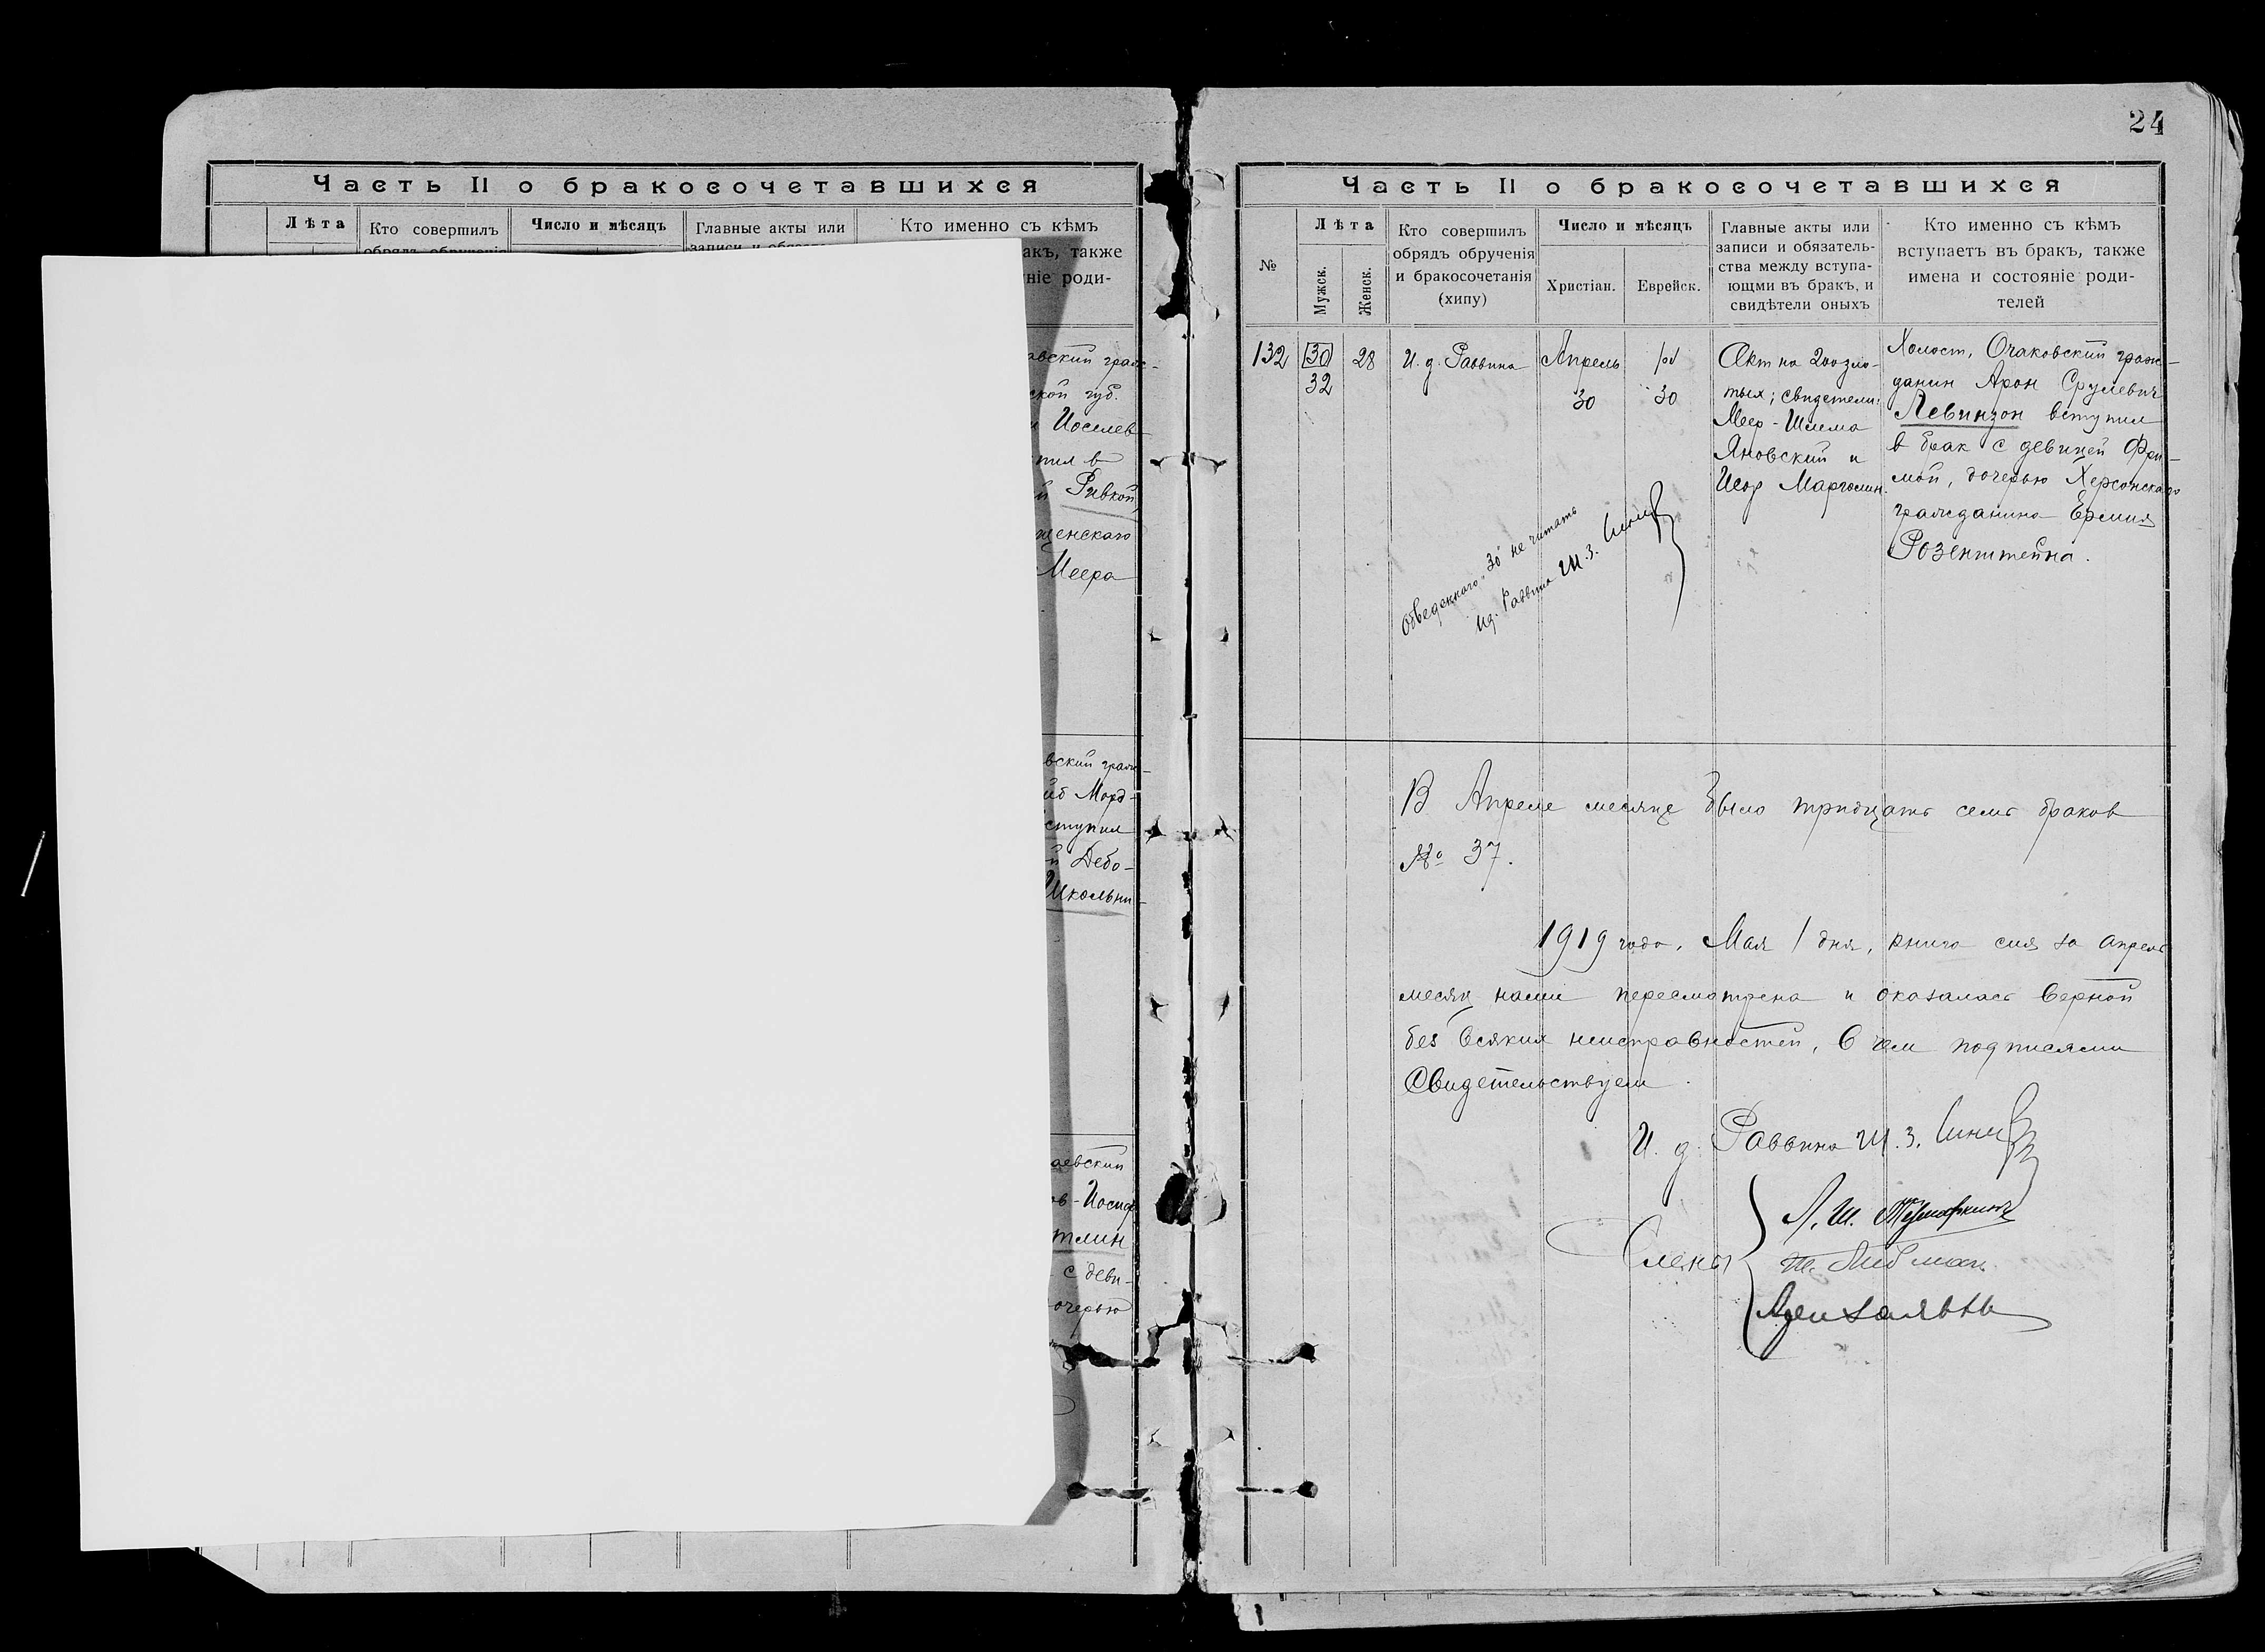 Часть II о бракосочетавшихся
Лѣта
Кто совершилъ
Число и мѣсяцъ
Главные акты или
Кто именно съ кѣмъ
акъ, также
ніе роди-
вский граж-
ской губ.
Иоселев
пил в
й Ривкой,
женскаго
Меера
вский граж-
Морд-
ступил
й Дебо-
Школьни-
аевский
ов-Иосиф
тлин
с деви-
очерью
24
Часть II о бракосочетавшихся
№
Лѣта
Мужск.
Женск.
Кто совершилъ
обрядъ обрученія
и бракосочетанія
(хипу)
Число и мѣсяцъ
Христіан.
Еврейск.
Главные акты или
записи и обязатель-
ства между вступа-
ющми въ брак, и
свидѣтели оныхъ
Кто именно съ кѣмъ
вступаетъ въ брак, также
имена и состояніе роди-
телей
132
30
32
28
И. д. Раввина
Апрель
30
30
Акт на 200 зло-
тых; свидетели:
Меер-Шлема
Яновский и
Исор Марголин.
Холост, Очаковский граж-
данин Арон Срулевич
Левинзон вступил
в брак с девицей Фри-
мой, дочерью Херсонскаго
гражданина Ермия
Розенштейна.
Обведеннаго "30" не читать
Ид. Раввина Ш. З.
В Апреле месяце было тридцать семь браков
№ 37.
1919 года, Мая 1 дня, книга сия за апрель
месяц нами пересмотрена и оказалась верной
без всяких неисправностей, в чем подписями
свидетельствуем.
И. д. Раввина Ш. З.
Члены
Л. Ш.
Ш. Либман